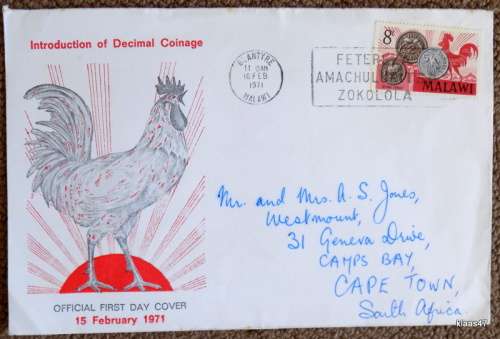 Introduction of Decimal Coinage
BLANTYRE
11 AM
16 FEB
1971
MALAWI
AMACHULU
ZOKOLOLA
8
MALAWI
Mr. and Mrs. A. S. Jones,
Westmount,
31 Geneva Drive,
CAMPS BAY,
CAPE TOWN,
South Africa.
OFFICIAL FIRST DAY COVER
15 February 1971
klaas47